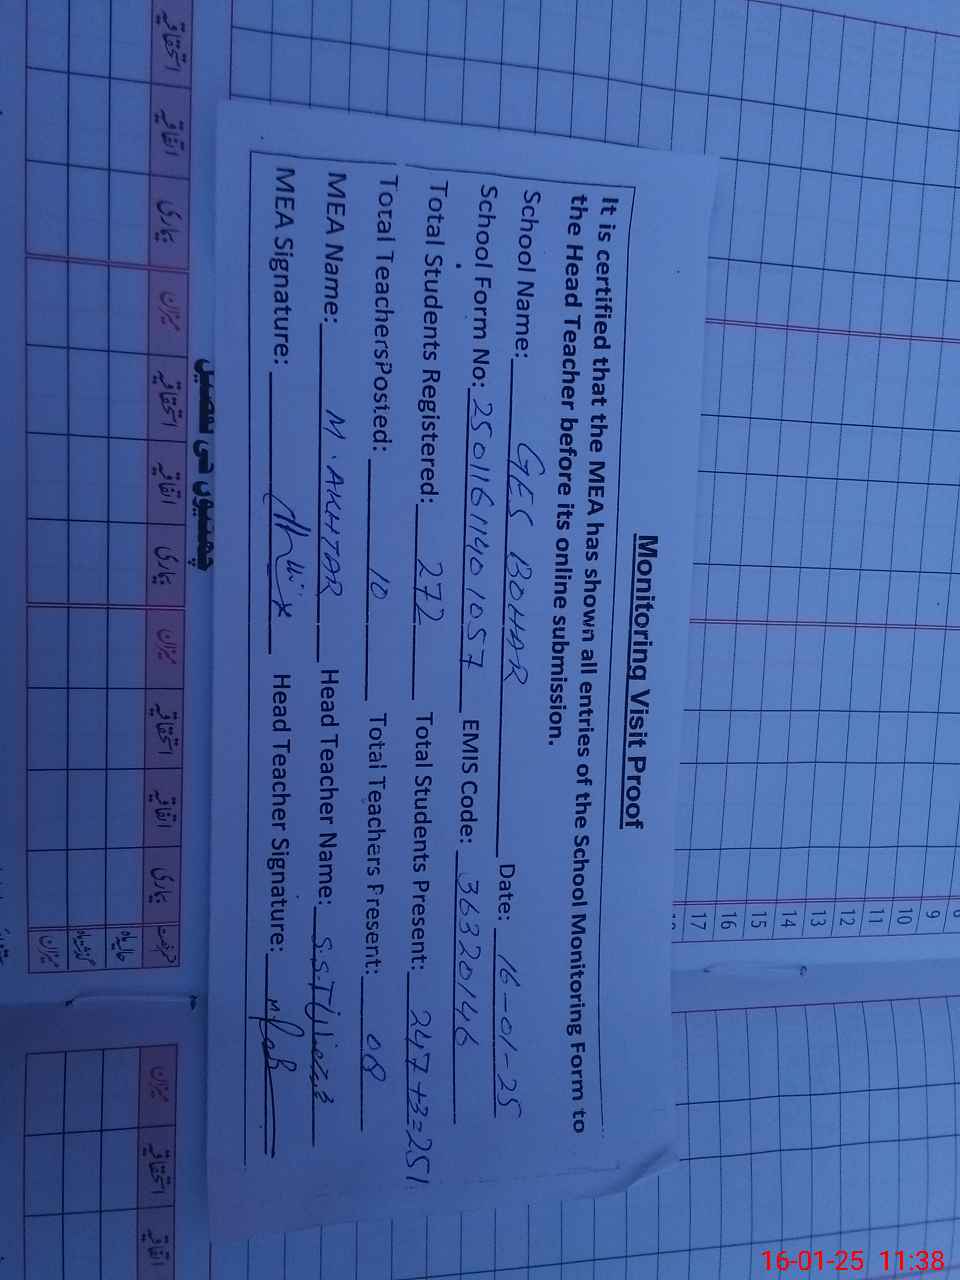 Monitoring Visit Proof
It is certified that the MEA has shown all entries of the School Monitoring Form to
the Head Teacher before its online submission.
School Name: GES BOHAR Date: 16-01-25
School Form No: 2501161140 1057 EMIS Code: 36320146
Total Students Registered: 272 Total Students Present: 247+3=251
Total TeachersPosted: 10 Total Teachers Present: 08
MEA Name: M. AKHTAR Head Teacher Name: S.S.T
MEA Signature: Head Teacher Signature:
9
10
11
12
13
14
15
16
17
استحقاقیہ اتفاقیہ بیماری میزان استحقاقیہ اتفاقیہ بیماری میزان استحقاقیہ اتفاقیہ بیماری
میزان استحقاقیہ اتفاقیہ
میزان
16-01-25 11:38